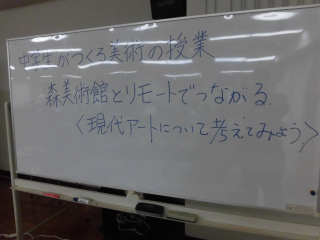 中学生がつくる美術の授業
森美術館とリモートでつながる
<現代アートについて考えてみよう>